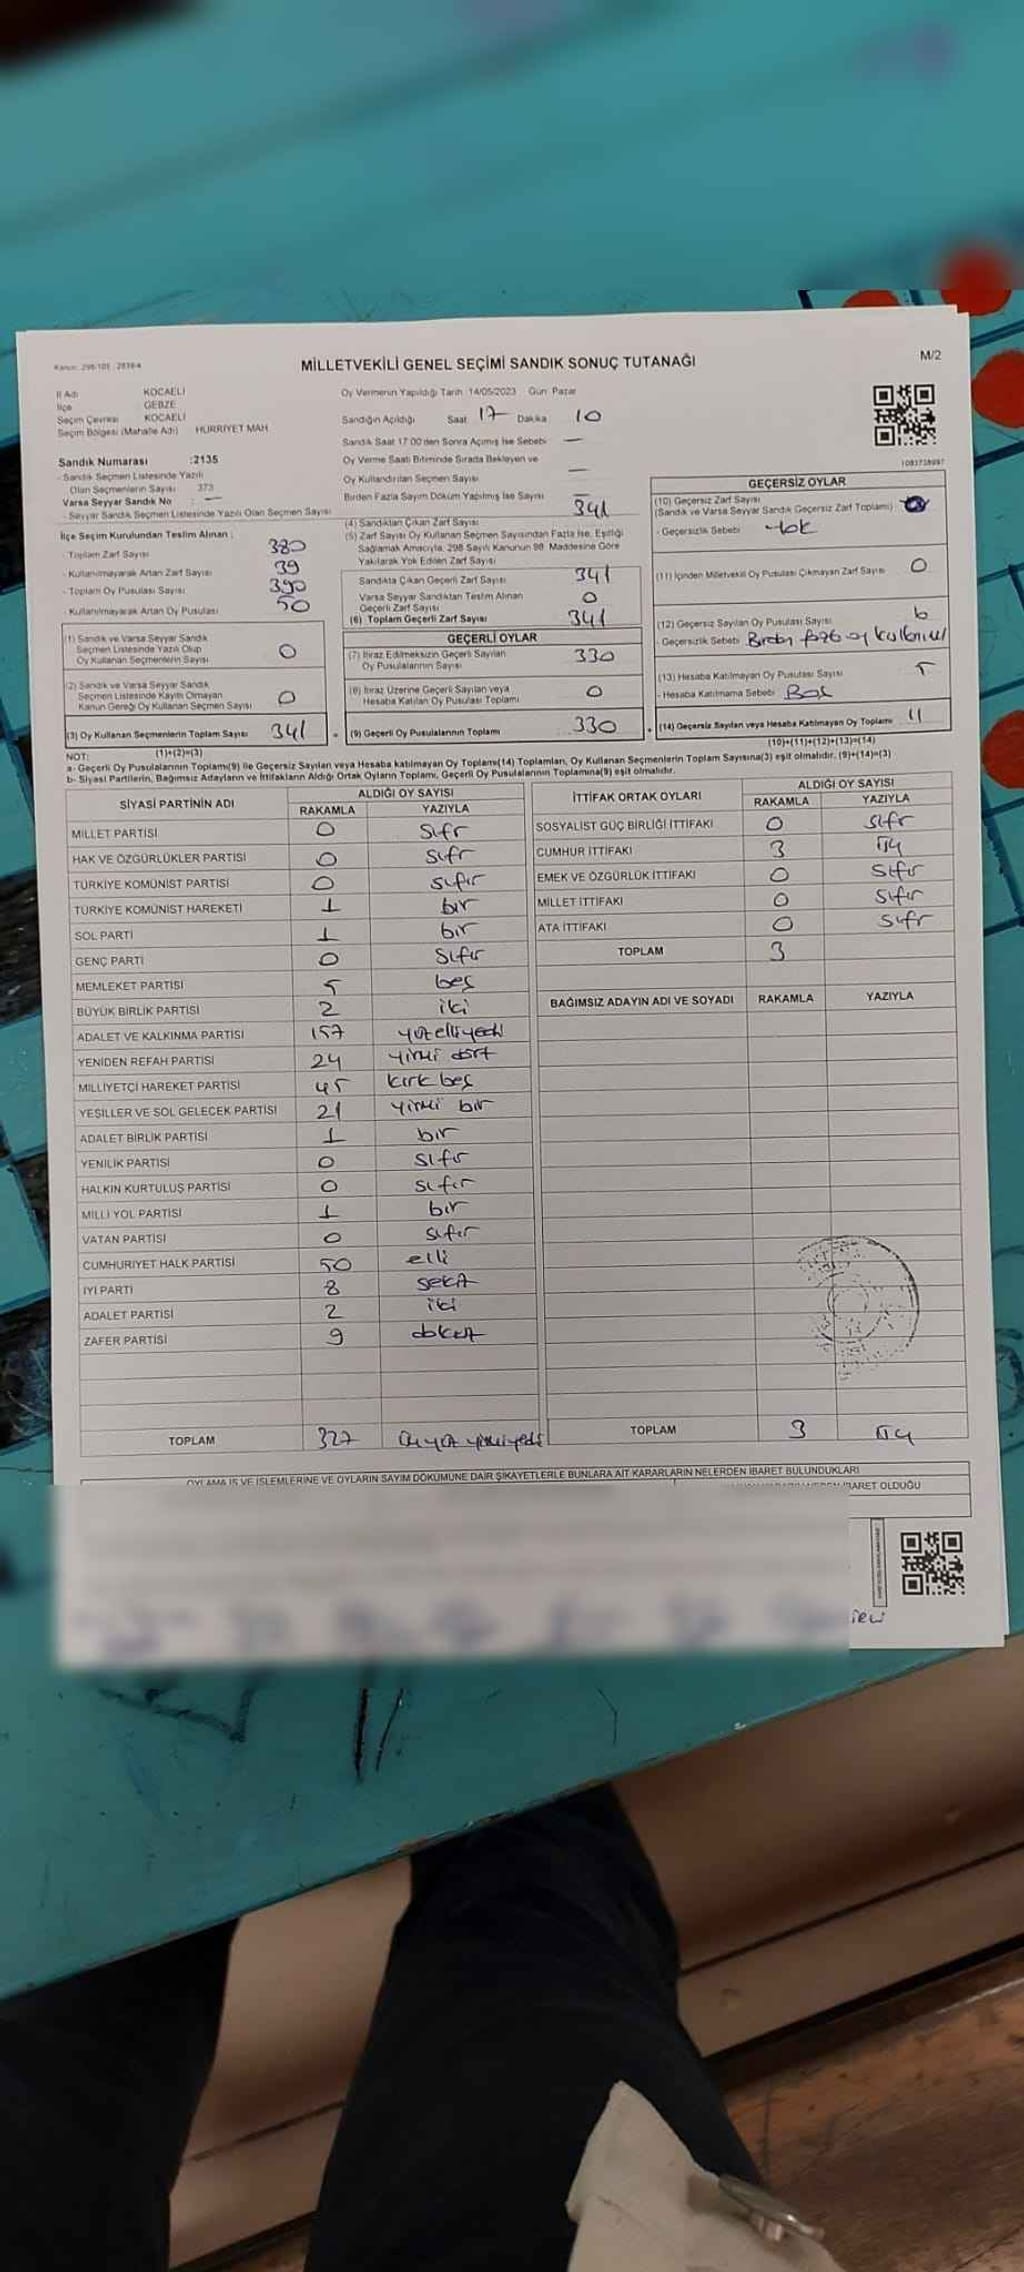 Kanun: 298/105 - 2839/4
MİLLETVEKİLİ GENEL SEÇİMİ SANDIK SONUÇ TUTANAĞI
M/2
İl Adı KOCAELİ
İlçe GEBZE
Seçim Çevresi KOCAELİ
Seçim Bölgesi (Mahalle Adı) HÜRRİYET MAH.
Sandık Numarası :2135
- Sandık Seçmen Listesinde Yazılı
Olan Seçmenlerin Sayısı 373
Varsa Seyyar Sandık No : —
- Seyyar Sandık Seçmen Listesinde Yazılı Olan Seçmen Sayısı
Oy Vermenin Yapıldığı Tarih: 14/05/2023 Gün: Pazar
Sandığın Açıldığı Saat 17 Dakika 10
Sandık Saat 17:00'den Sonra Açılmış İse Sebebi —
Oy Verme Saati Bitiminde Sırada Bekleyen ve
Oy Kullandırılan Seçmen Sayısı —
Birden Fazla Sayım Döküm Yapılmış İse Sayısı —
1083738997
İlçe Seçim Kurulundan Teslim Alınan :
- Toplam Zarf Sayısı 380
- Kullanılmayarak Artan Zarf Sayısı 39
- Toplam Oy Pusulası Sayısı 390
- Kullanılmayarak Artan Oy Pusulası 50
(1) Sandık ve Varsa Seyyar Sandık
Seçmen Listesinde Yazılı Olup
Oy Kullanan Seçmenlerin Sayısı 0
(2) Sandık ve Varsa Seyyar Sandık
Seçmen Listesinde Kayıtlı Olmayan
Kanun Gereği Oy Kullanan Seçmen Sayısı 0
(3) Oy Kullanan Seçmenlerin Toplam Sayısı 341
(1)+(2)=(3)
(4) Sandıktan Çıkan Zarf Sayısı 341
(5) Zarf Sayısı Oy Kullanan Seçmen Sayısından Fazla İse, Eşitliği
Sağlamak Amacıyla, 298 Sayılı Kanunun 98. Maddesine Göre
Yakılarak Yok Edilen Zarf Sayısı
Sandıkta Çıkan Geçerli Zarf Sayısı 341
Varsa Seyyar Sandıktan Teslim Alınan
Geçerli Zarf Sayısı 0
(6) Toplam Geçerli Zarf Sayısı 341
GEÇERLİ OYLAR
(7) İtiraz Edilmeksizin Geçerli Sayılan
Oy Pusulalarının Sayısı 330
(8) İtiraz Üzerine Geçerli Sayılan veya
Hesaba Katılan Oy Pusulası Toplamı 0
(9) Geçerli Oy Pusulalarının Toplamı 330
GEÇERSİZ OYLAR
(10) Geçersiz Zarf Sayısı
(Sandık ve Varsa Seyyar Sandık Geçersiz Zarf Toplamı)
- Geçersizlik Sebebi Yok
(11) İçinden Milletvekili Oy Pusulası Çıkmayan Zarf Sayısı 0
(12) Geçersiz Sayılan Oy Pusulası Sayısı 6
- Geçersizlik Sebebi Birden fazla oy
(13) Hesaba Katılmayan Oy Pusulası Sayısı 5
- Hesaba Katılmama Sebebi Boş
(14) Geçersiz Sayılan veya Hesaba Katılmayan Oy Toplamı 11
(10)+(11)+(12)+(13)=(14)
NOT:
a- Geçerli Oy Pusulalarının Toplamı(9) ile Geçersiz Sayılan veya Hesaba katılmayan Oy Toplamı(14) Toplamları, Oy Kullanan Seçmenlerin Toplam Sayısına(3) eşit olmalıdır. (9)+(14)=(3)
b- Siyasi Partilerin, Bağımsız Adayların ve İttifakların Aldığı Ortak Oyların Toplamı, Geçerli Oy Pusulalarının Toplamına(9) eşit olmalıdır.
SİYASİ PARTİNİN ADI ALDIĞI OY SAYISI
RAKAMLA YAZIYLA
MİLLET PARTİSİ 0 sıfır
HAK VE ÖZGÜRLÜKLER PARTİSİ 0 sıfır
TÜRKİYE KOMÜNİST PARTİSİ 0 sıfır
TÜRKİYE KOMÜNİST HAREKETİ 1 bir
SOL PARTİ 1 bir
GENÇ PARTİ 0 sıfır
MEMLEKET PARTİSİ 5 beş
BÜYÜK BİRLİK PARTİSİ 2 iki
ADALET VE KALKINMA PARTİSİ 157 yüzelliyedi
YENİDEN REFAH PARTİSİ 24 yirmi dört
MİLLİYETÇİ HAREKET PARTİSİ 45 kırk beş
YEŞİLLER VE SOL GELECEK PARTİSİ 21 yirmi bir
ADALET BİRLİK PARTİSİ 1 bir
YENİLİK PARTİSİ 0 sıfır
HALKIN KURTULUŞ PARTİSİ 0 sıfır
MİLLİ YOL PARTİSİ 1 bir
VATAN PARTİSİ 0 sıfır
CUMHURİYET HALK PARTİSİ 50 elli
İYİ PARTİ 8 sekiz
ADALET PARTİSİ 2 iki
ZAFER PARTİSİ 9 dokuz
TOPLAM 327 üçyüz yirmiyedi
İTTİFAK ORTAK OYLARI ALDIĞI OY SAYISI
RAKAMLA YAZIYLA
SOSYALİST GÜÇ BİRLİĞİ İTTİFAKI 0 sıfır
CUMHUR İTTİFAKI 3 üç
EMEK VE ÖZGÜRLÜK İTTİFAKI 0 sıfır
MİLLET İTTİFAKI 0 sıfır
ATA İTTİFAKI 0 sıfır
TOPLAM 3
BAĞIMSIZ ADAYIN ADI VE SOYADI RAKAMLA YAZIYLA
TOPLAM 3 üç
OYLAMA İŞ VE İŞLEMLERİNE VE OYLARIN SAYIM DÖKÜMÜNE DAİR ŞİKAYETLERLE BUNLARA AİT KARARLARIN NELERDEN İBARET BULUNDUKLARI
İBARET OLDUĞU